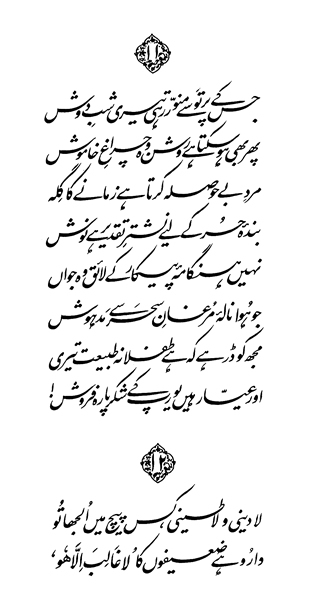 ۱۱
جس کے پرتو سے منوّر رہی تیری شبِ دوش
پھر بھی ہو سکتا ہے روشن وہ چراغِ خاموش
مردِ بے حوصلہ کرتا ہے زمانے کا گِلہ
بندۂ حُر کے لیے نشترِ تقدیر ہے نوش
نہیں ہنگامۂ پیکار کے لائق وہ جواں
جو ہُوا نالۂ مُرغانِ سحر سے مدہوش
مجھ کو ڈر ہے کہ ہے طفلانہ طبیعت تیری
اور عیّار ہیں یورپ کے شکر پارہ فروش!
۱۲
لادینی و لاطینی، کس پیچ میں اُلجھا تُو
دارُو ہے ضعیفوں کا ’لَاغَالِبَ اِلَّا ھُوَ‘